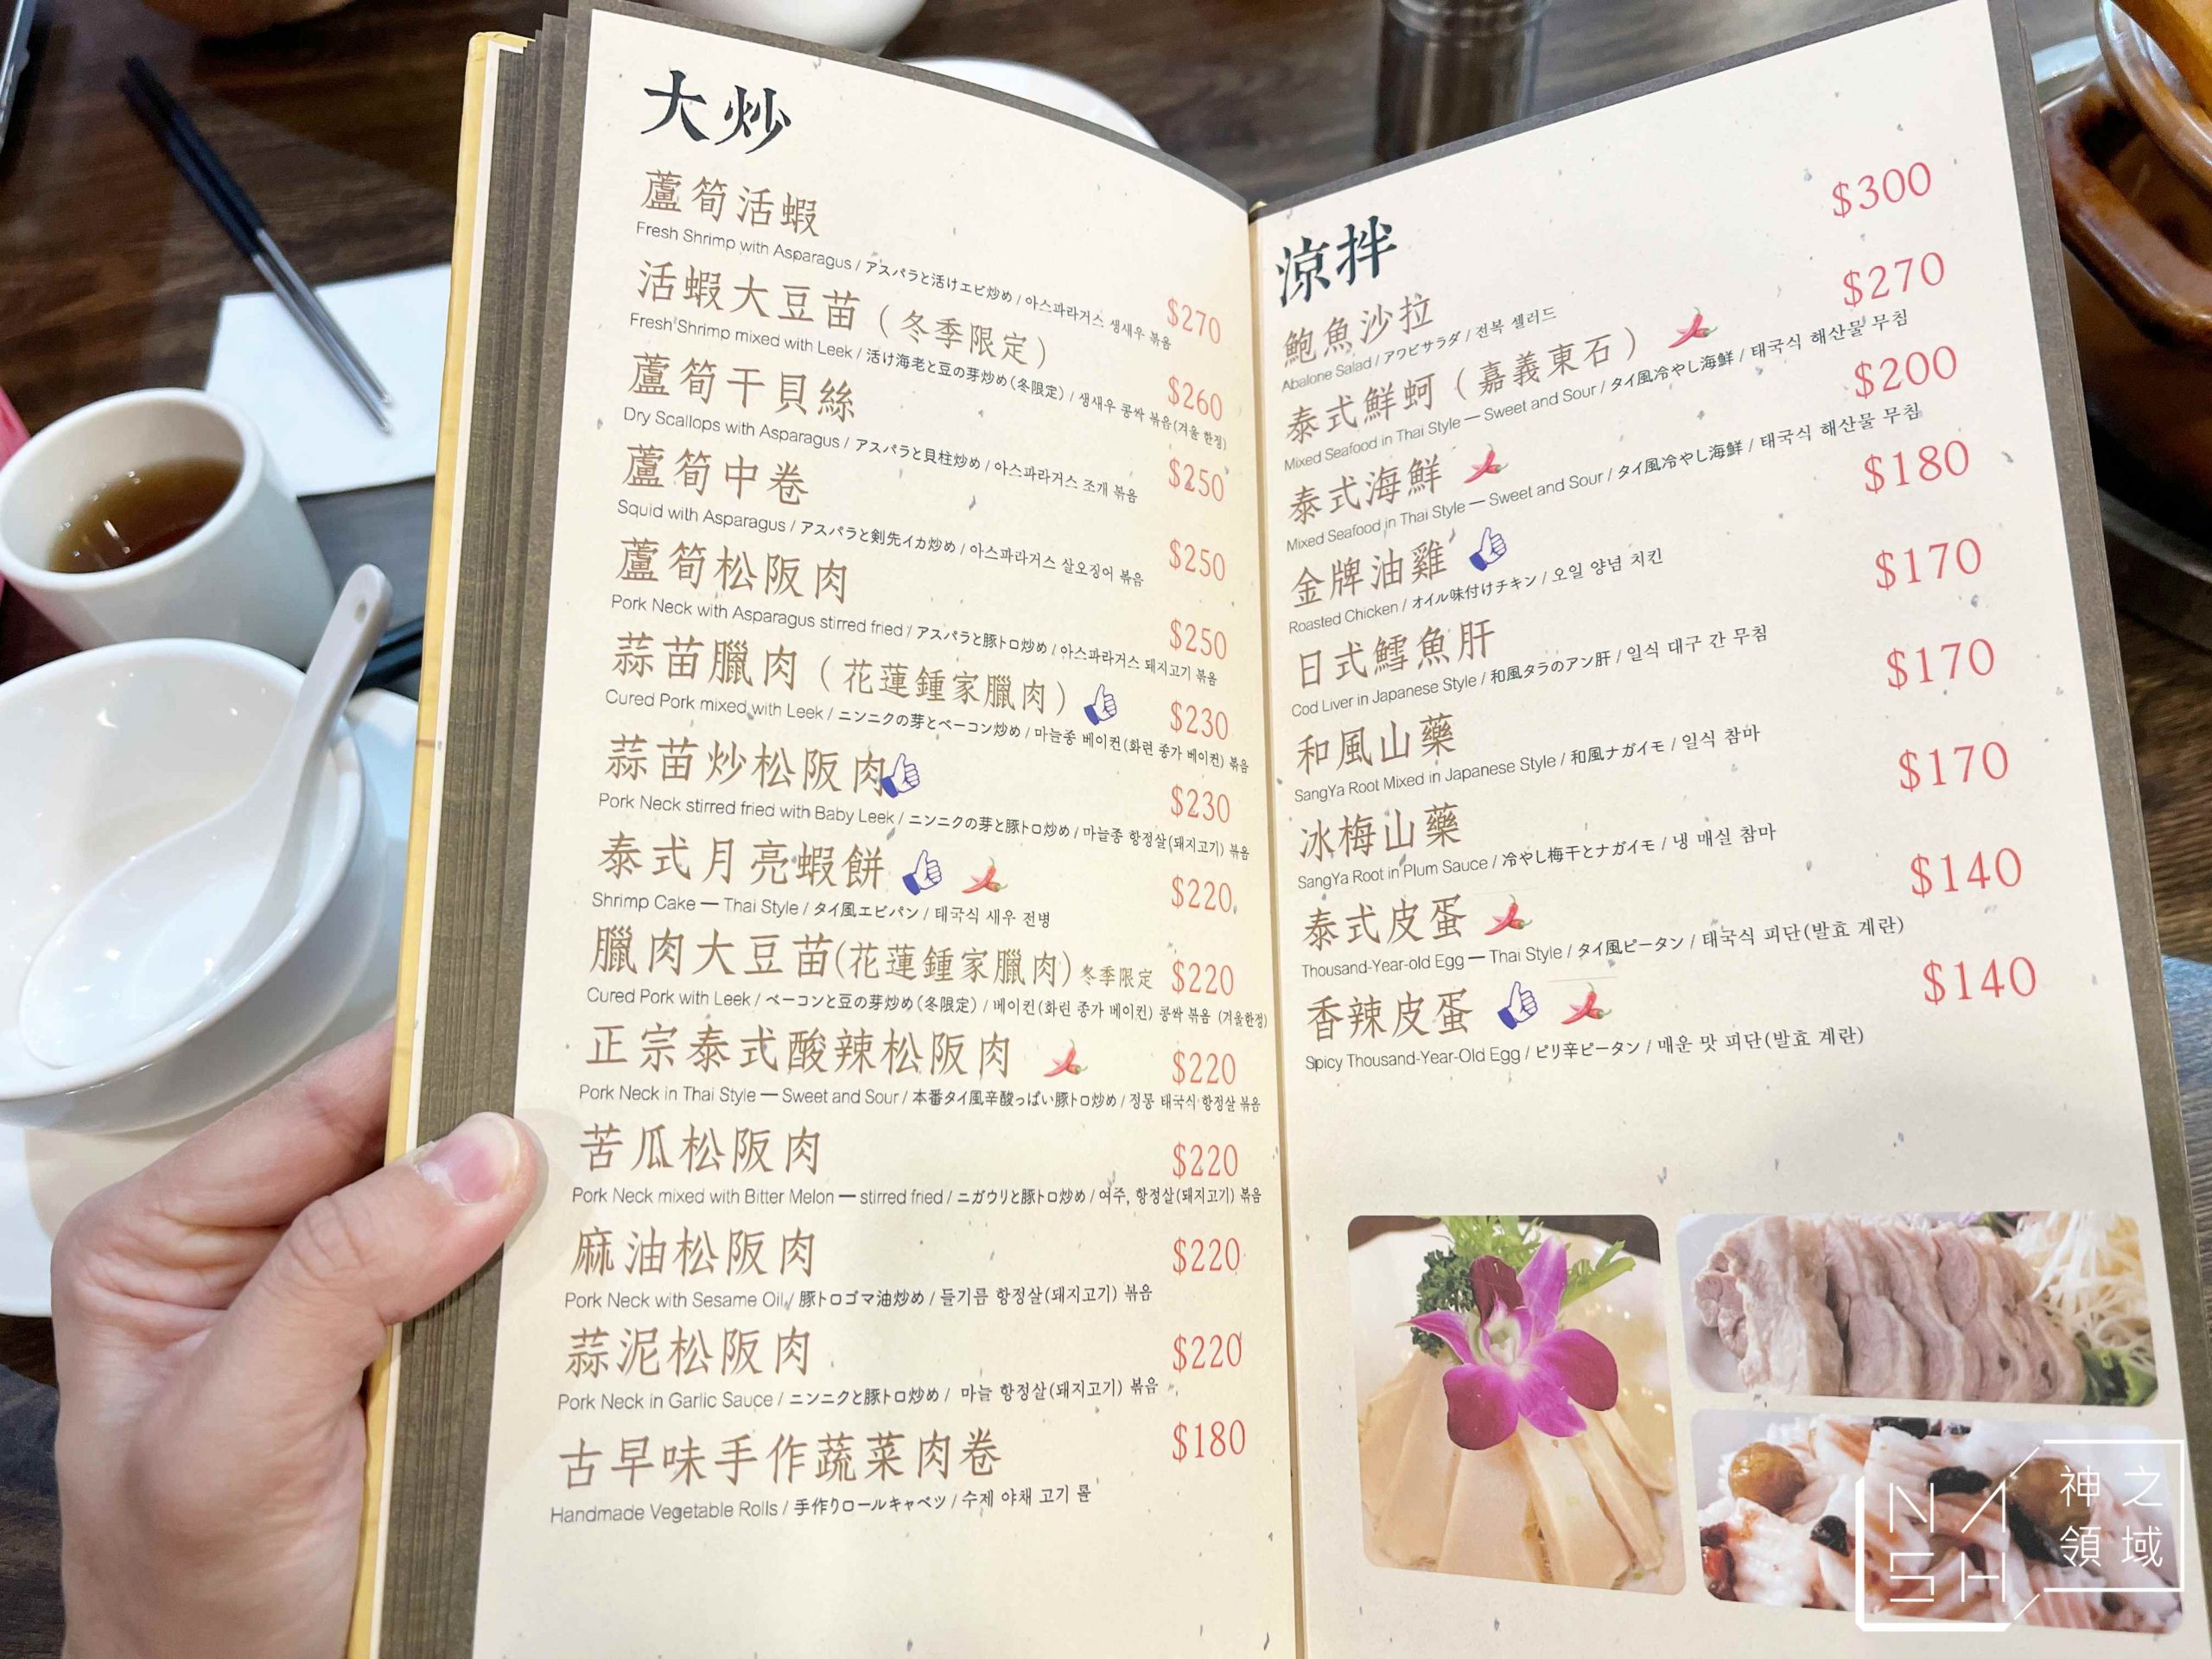 大炒
蘆筍活蝦
$270
Fresh Shrimp with Asparagus / アスパラと活けエビ炒め / 아스파라거스 생새우 볶음
活蝦大豆苗（冬季限定）
$260
Fresh Shrimp mixed with Leek / 活け海老と豆の芽炒め（冬限定）/ 생새우 콩싹 볶음(겨울 한정)
蘆筍干貝絲
$250
Dry Scallops with Asparagus / アスパラと貝柱炒め / 아스파라거스 조개 볶음
蘆筍中卷
$250
Squid with Asparagus / アスパラと剣先イカ炒め / 아스파라거스 살오징어 볶음
蘆筍松阪肉
$250
Pork Neck with Asparagus stirred fried / アスパラと豚トロ炒め / 아스파라거스 돼지고기 볶음
蒜苗臘肉（花蓮鍾家臘肉）
$230
Cured Pork mixed with Leek / ニンニクの芽とベーコン炒め / 마늘종 베이컨(화련 종가 베이컨) 볶음
蒜苗炒松阪肉
$230
Pork Neck stirred fried with Baby Leek / ニンニクの芽と豚トロ炒め / 마늘종 항정살(돼지고기) 볶음
泰式月亮蝦餅
$220
Shrimp Cake — Thai Style / タイ風エビパン / 태국식 새우 전병
臘肉大豆苗(花蓮鍾家臘肉)冬季限定
$220
Cured Pork with Leek / ベーコンと豆の芽炒め（冬限定）/ 베이컨(화련 종가 베이컨) 콩싹 볶음 (겨울한정)
正宗泰式酸辣松阪肉
$220
Pork Neck in Thai Style — Sweet and Sour / 本番タイ風辛酸っぱい豚トロ炒め / 정통 태국식 항정살 볶음
苦瓜松阪肉
$220
Pork Neck mixed with Bitter Melon — stirred fried / ニガウリと豚トロ炒め / 여주, 항정살(돼지고기) 볶음
麻油松阪肉
$220
Pork Neck with Sesame Oil / 豚トロゴマ油炒め / 들기름 항정살(돼지고기) 볶음
蒜泥松阪肉
$220
Pork Neck in Garlic Sauce / ニンニクと豚トロ炒め / 마늘 항정살(돼지고기) 볶음
古早味手作蔬菜肉卷
$180
Handmade Vegetable Rolls / 手作りロールキャベツ / 수제 야채 고기 롤
涼拌
鮑魚沙拉
$300
Abalone Salad / アワビサラダ / 전복 샐러드
泰式鮮蚵（嘉義東石）
$270
Mixed Seafood in Thai Style — Sweet and Sour / タイ風冷やし海鮮 / 태국식 해산물 무침
泰式海鮮
$200
Mixed Seafood in Thai Style — Sweet and Sour / タイ風冷やし海鮮 / 태국식 해산물 무침
金牌油雞
$180
Roasted Chicken / オイル味付けチキン / 오일 양념 치킨
日式鱈魚肝
$170
Cod Liver in Japanese Style / 和風タラのアン肝 / 일식 대구 간 무침
和風山藥
$170
SangYa Root Mixed in Japanese Style / 和風ナガイモ / 일식 참마
冰梅山藥
$170
SangYa Root in Plum Sauce / 冷やし梅干とナガイモ / 냉 매실 참마
泰式皮蛋
$140
Thousand-Year-old Egg — Thai Style / タイ風ピータン / 태국식 피단(발효 계란)
香辣皮蛋
$140
Spicy Thousand-Year-Old Egg / ピリ辛ピータン / 매운 맛 피단(발효 계란)
NASH
神之領域